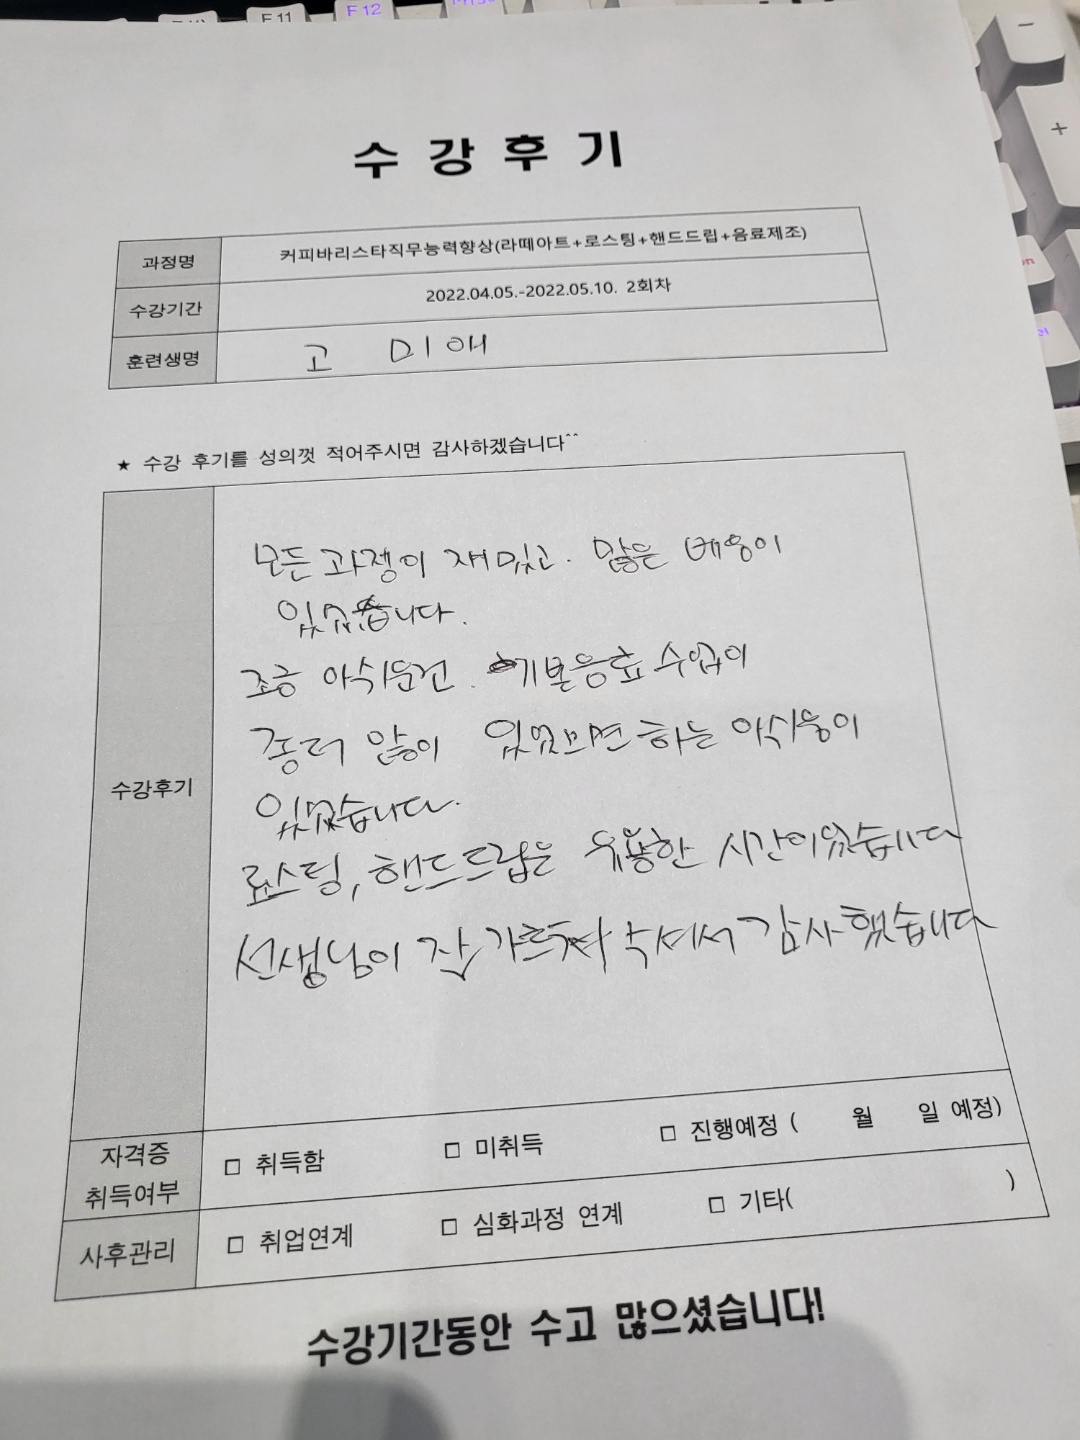 F11
F12
수 강 후 기
과정명
커피바리스타직무능력향상(라떼아트+로스팅+핸드드립+음료제조)
수강기간
2022.04.05.-2022.05.10. 2회차
훈련생명
고 미애
★ 수강 후기를 성의껏 적어주시면 감사하겠습니다^^
수강후기
모든 과정이 재밌고. 많은 배움이
있었습니다.
조금 아쉬운건. 기본음료 수업이
좀더 많이 있었으면 하는 아쉬움이
있었습니다.
로스팅, 핸드드립은 유용한 시간이었습니다
선생님이 잘 가르쳐 주셔서 감사했습니다
자격증
취득여부
□ 취득함 □ 미취득 □ 진행예정 ( 월 일 예정)
사후관리
□ 취업연계 □ 심화과정 연계 □ 기타( )
수강기간동안 수고 많으셨습니다!